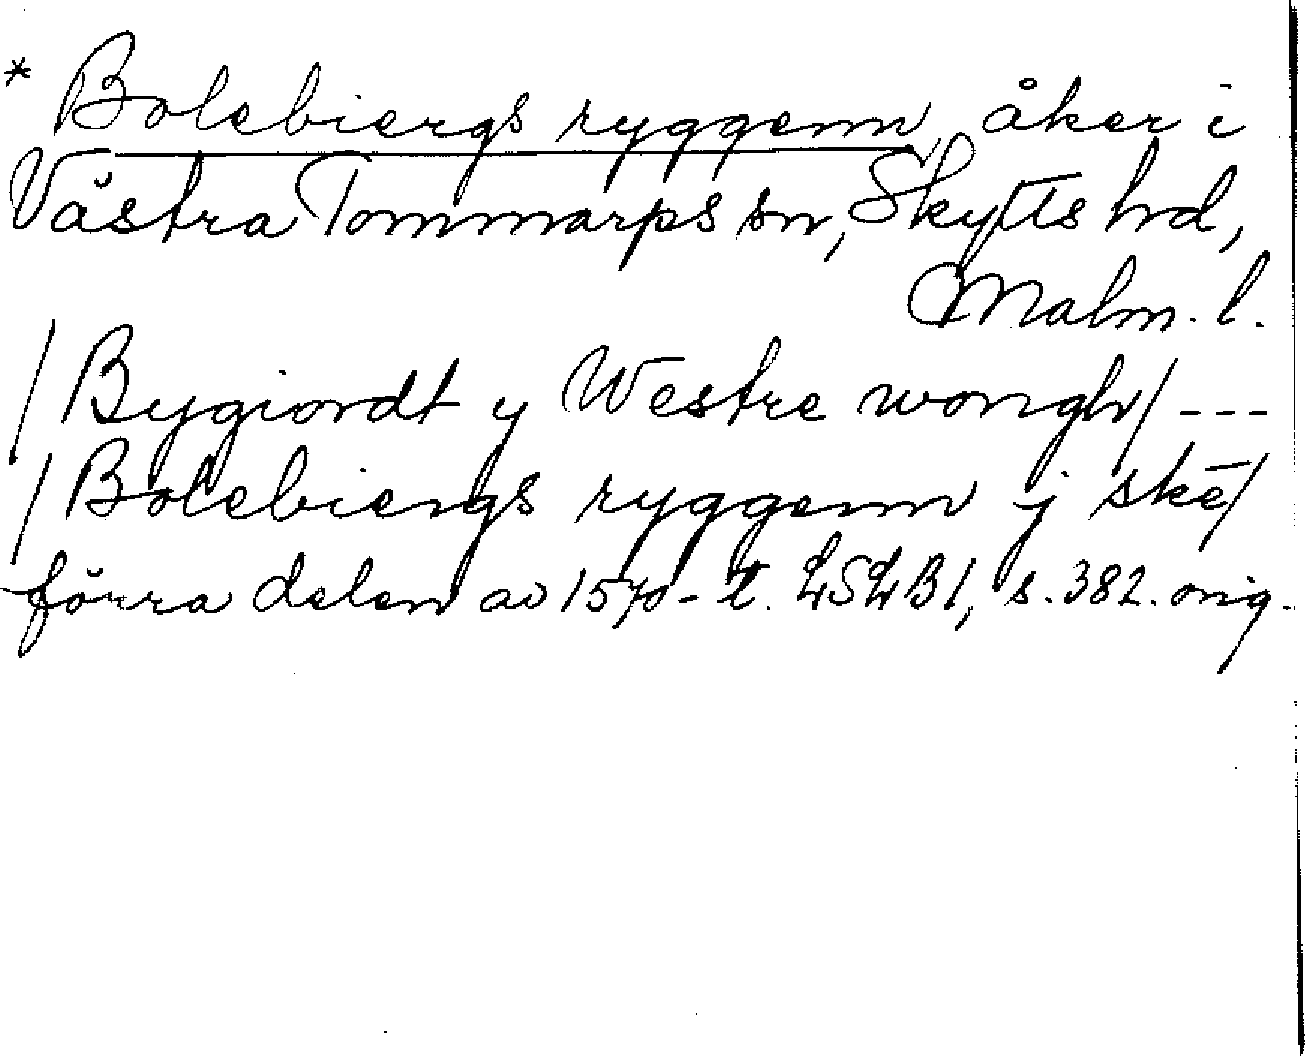 * Bolebiergs ryggenn, åker i
Västra Tommarps sn, Skytts hd,
Malm. l.
/Bygiordt y Westre wongh/ ---
/Bolebiergs ryggenn j skē/
förra delen av 1570-t. LSLB1, s. 382. orig.